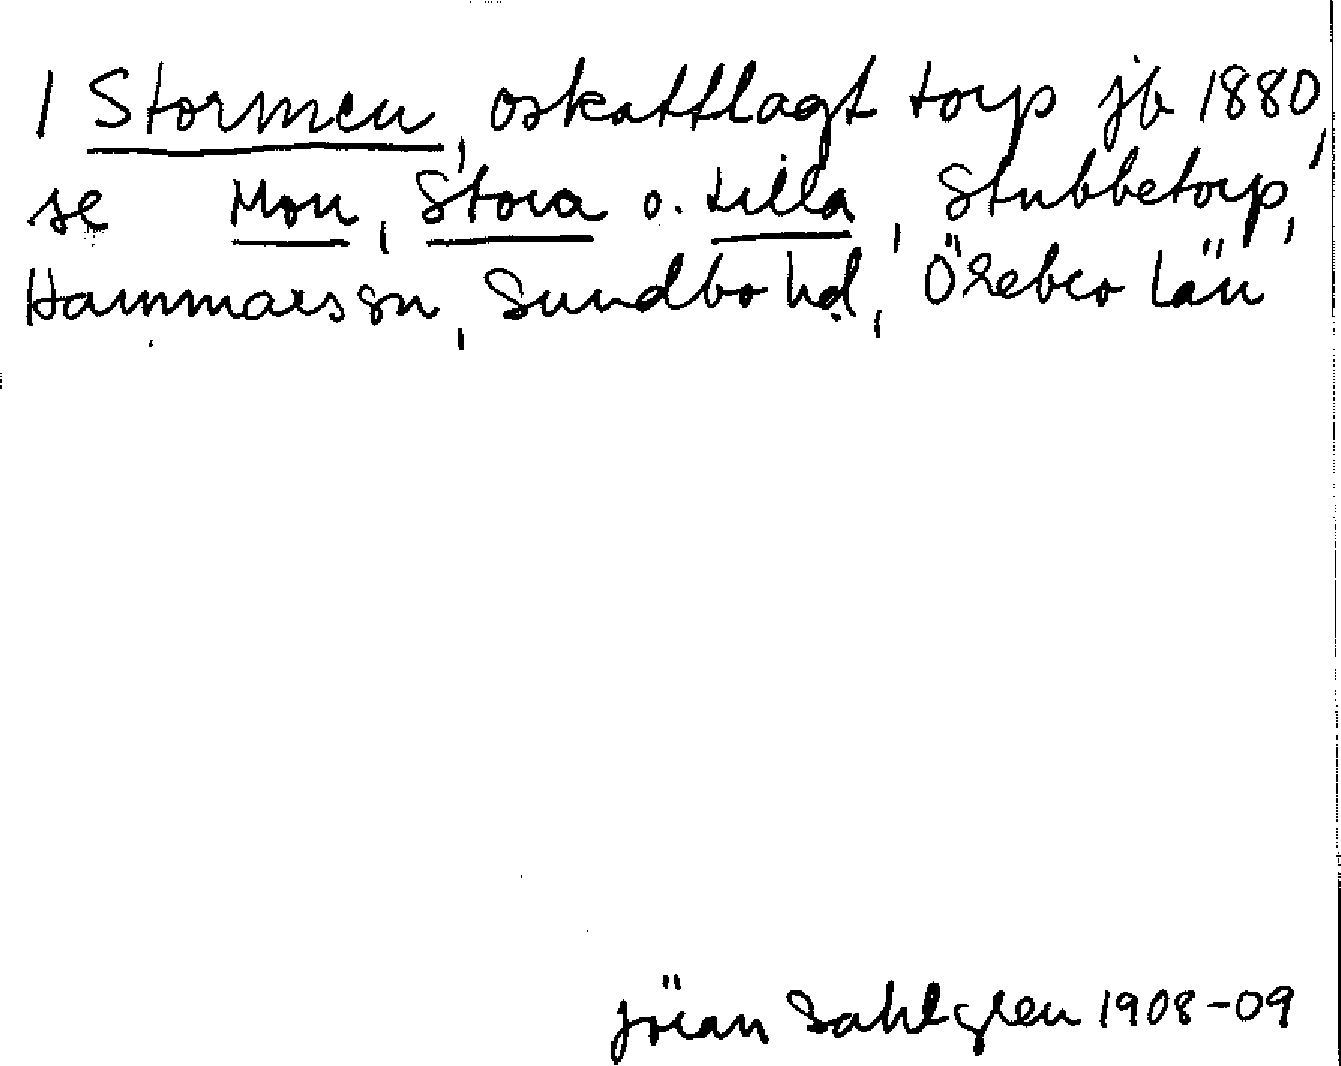 1 Stormen, oskattlagt torp jb 1880,
se Mon, Stora o. Lilla, Stubbetorp,
Hammars sn, Sundbo hd, Örebro län
Jöran Sahlgren 1908-09